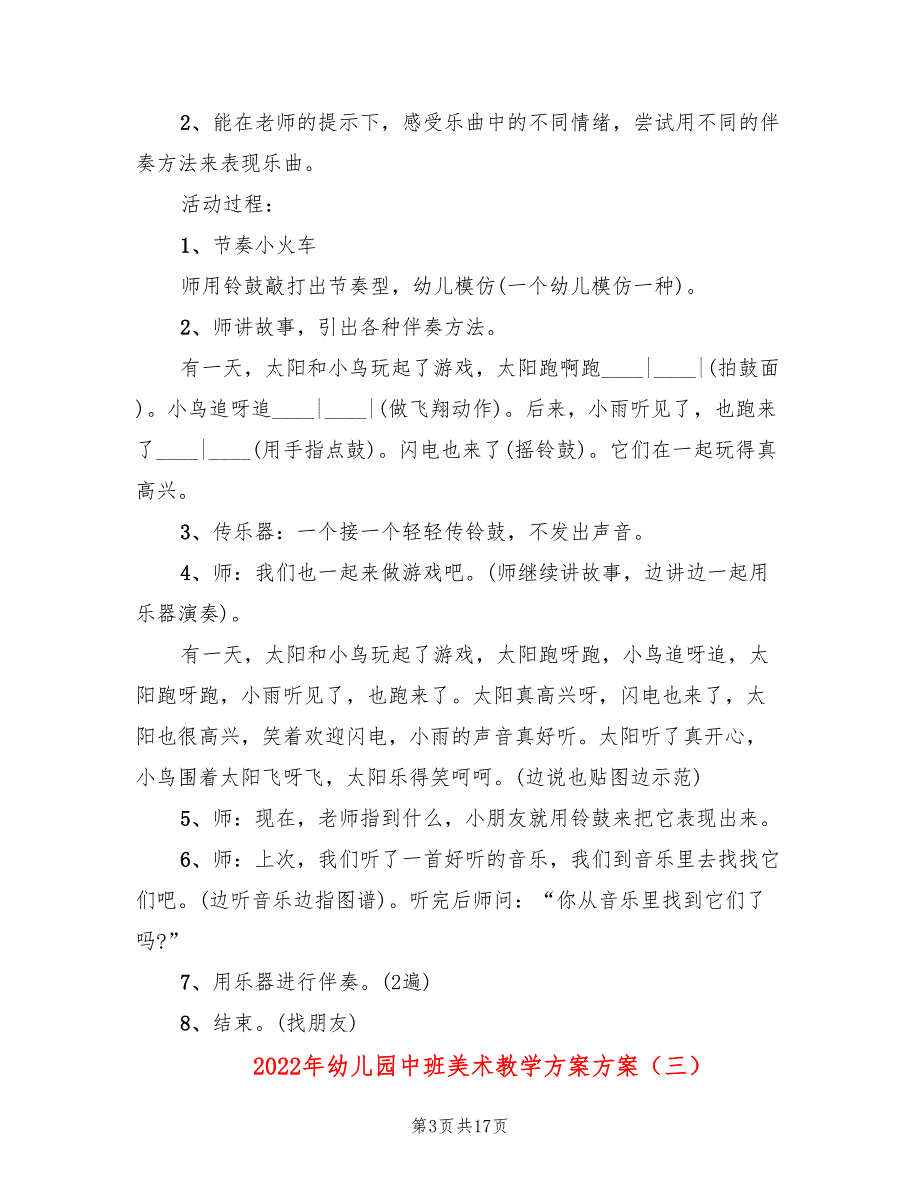 2、能在老师的提示下，感受乐曲中的不同情绪，尝试用不同的伴
奏方法来表现乐曲。
活动过程：
1、节奏小火车
师用铃鼓敲打出节奏型，幼儿模仿(一个幼儿模仿一种)。
2、师讲故事，引出各种伴奏方法。
有一天，太阳和小鸟玩起了游戏，太阳跑啊跑____|____|(拍鼓面
)。小鸟追呀追____|____|(做飞翔动作)。后来，小雨听见了，也跑来
了____|____(用手指点鼓)。闪电也来了(摇铃鼓)。它们在一起玩得真
高兴。
3、传乐器：一个接一个轻轻传铃鼓，不发出声音。
4、师：我们也一起来做游戏吧。(师继续讲故事，边讲边一起用
乐器演奏)。
有一天，太阳和小鸟玩起了游戏，太阳跑呀跑，小鸟追呀追，太
阳跑呀跑，小雨听见了，也跑来了。太阳真高兴呀，闪电也来了，太
阳也很高兴，笑着欢迎闪电，小雨的声音真好听。太阳听了真开心，
小鸟围着太阳飞呀飞，太阳乐得笑呵呵。(边说也贴图边示范)
5、师：现在，老师指到什么，小朋友就用铃鼓来把它表现出来。
6、师：上次，我们听了一首好听的音乐，我们到音乐里去找找它
们吧。(边听音乐边指图谱)。听完后师问：“你从音乐里找到它们了
吗?”
7、用乐器进行伴奏。(2遍)
8、结束。(找朋友)
2022年幼儿园中班美术教学方案方案（三）
第3页共17页